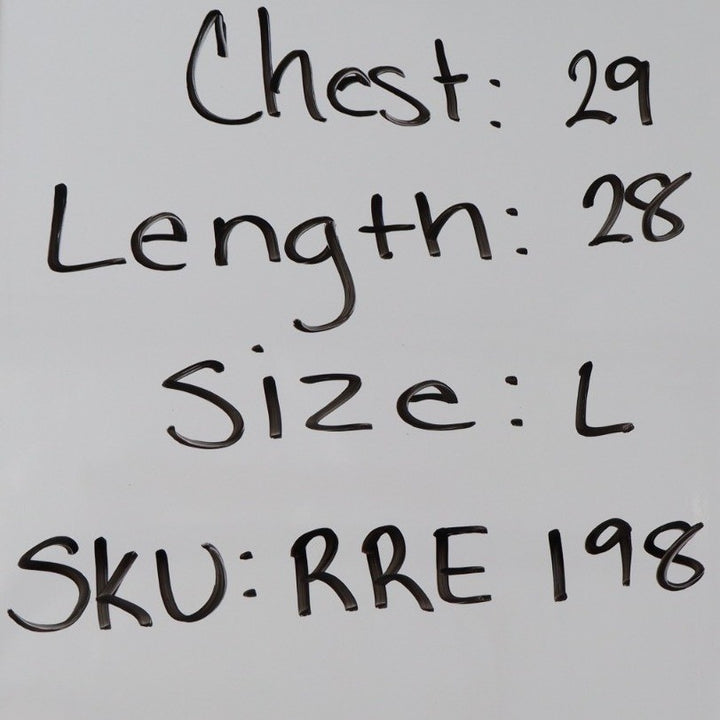 Chest: 29
Length: 28
Size: L
SKU: RRE 198